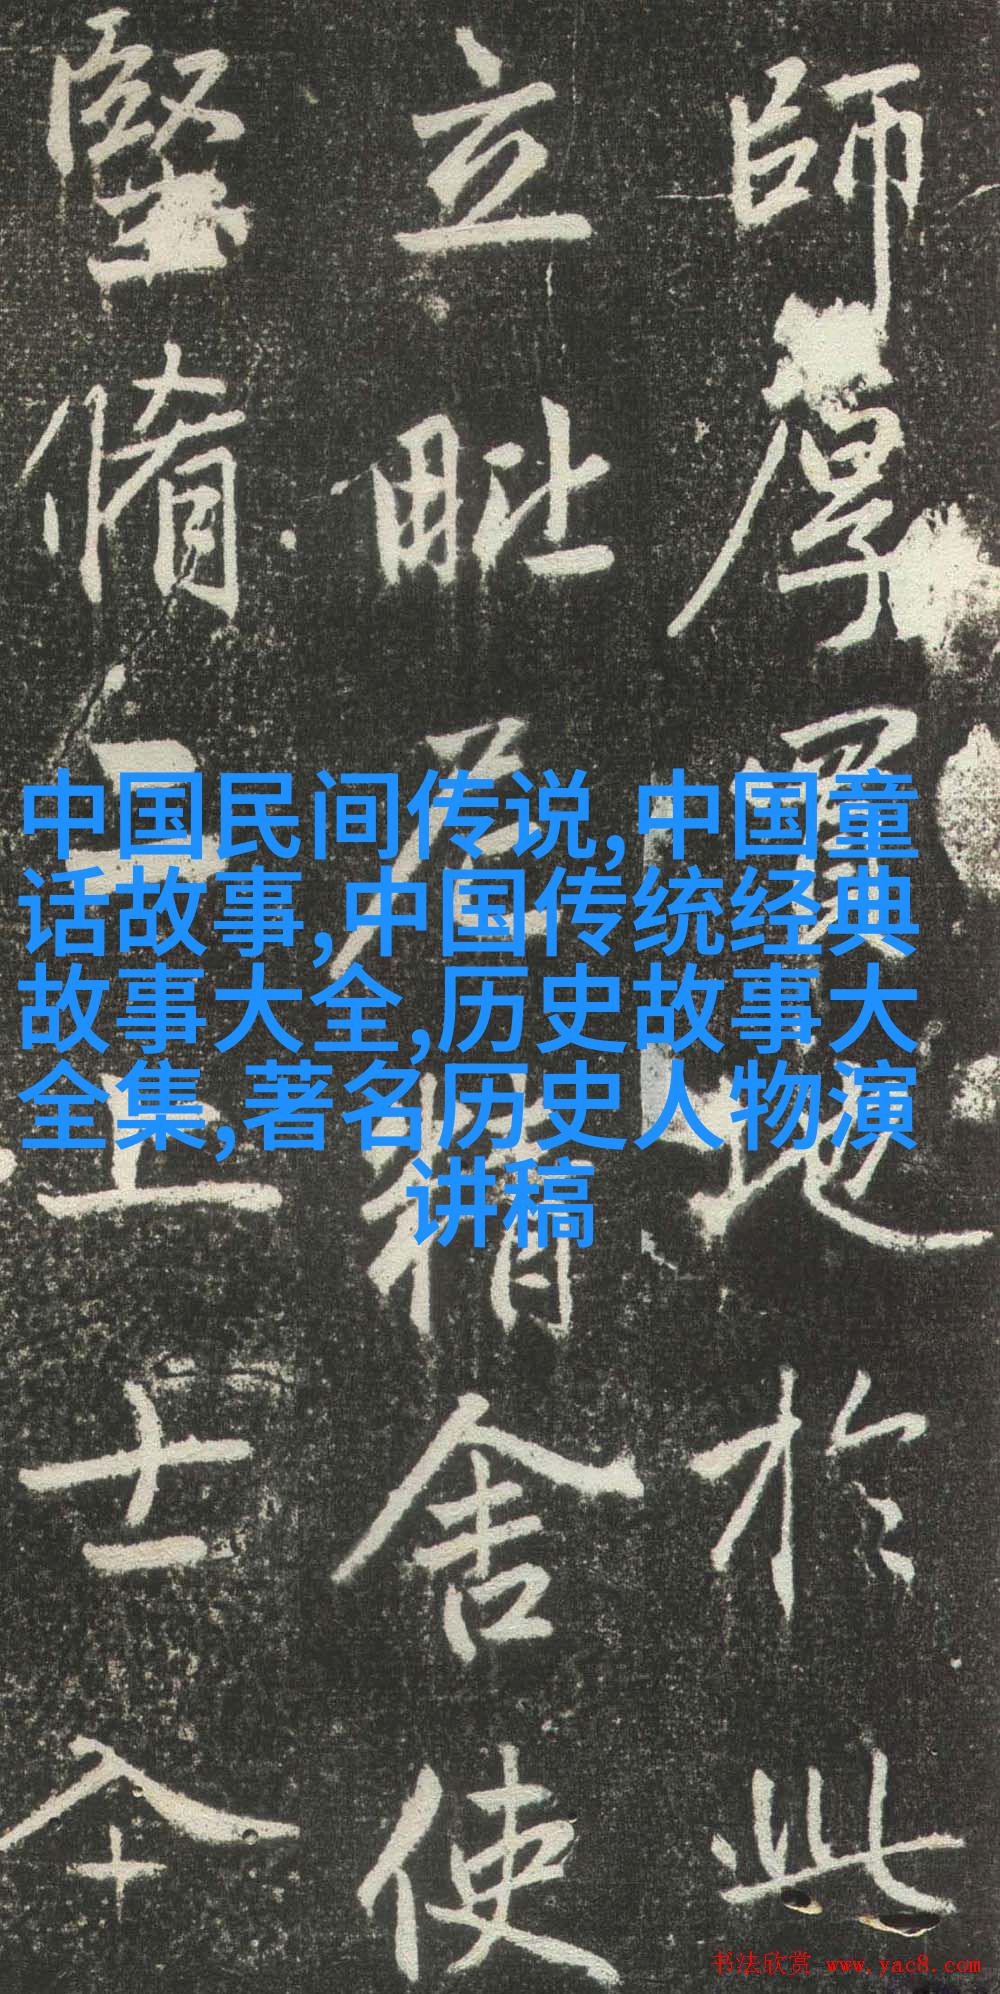 師厚買地於此
立毗尼精舍使
堅脩上士
中国民间传说,中国童
话故事,中国传统经典
故事大全,历史故事大
全集,著名历史人物演
讲稿
书法欣赏 www.yac8.com